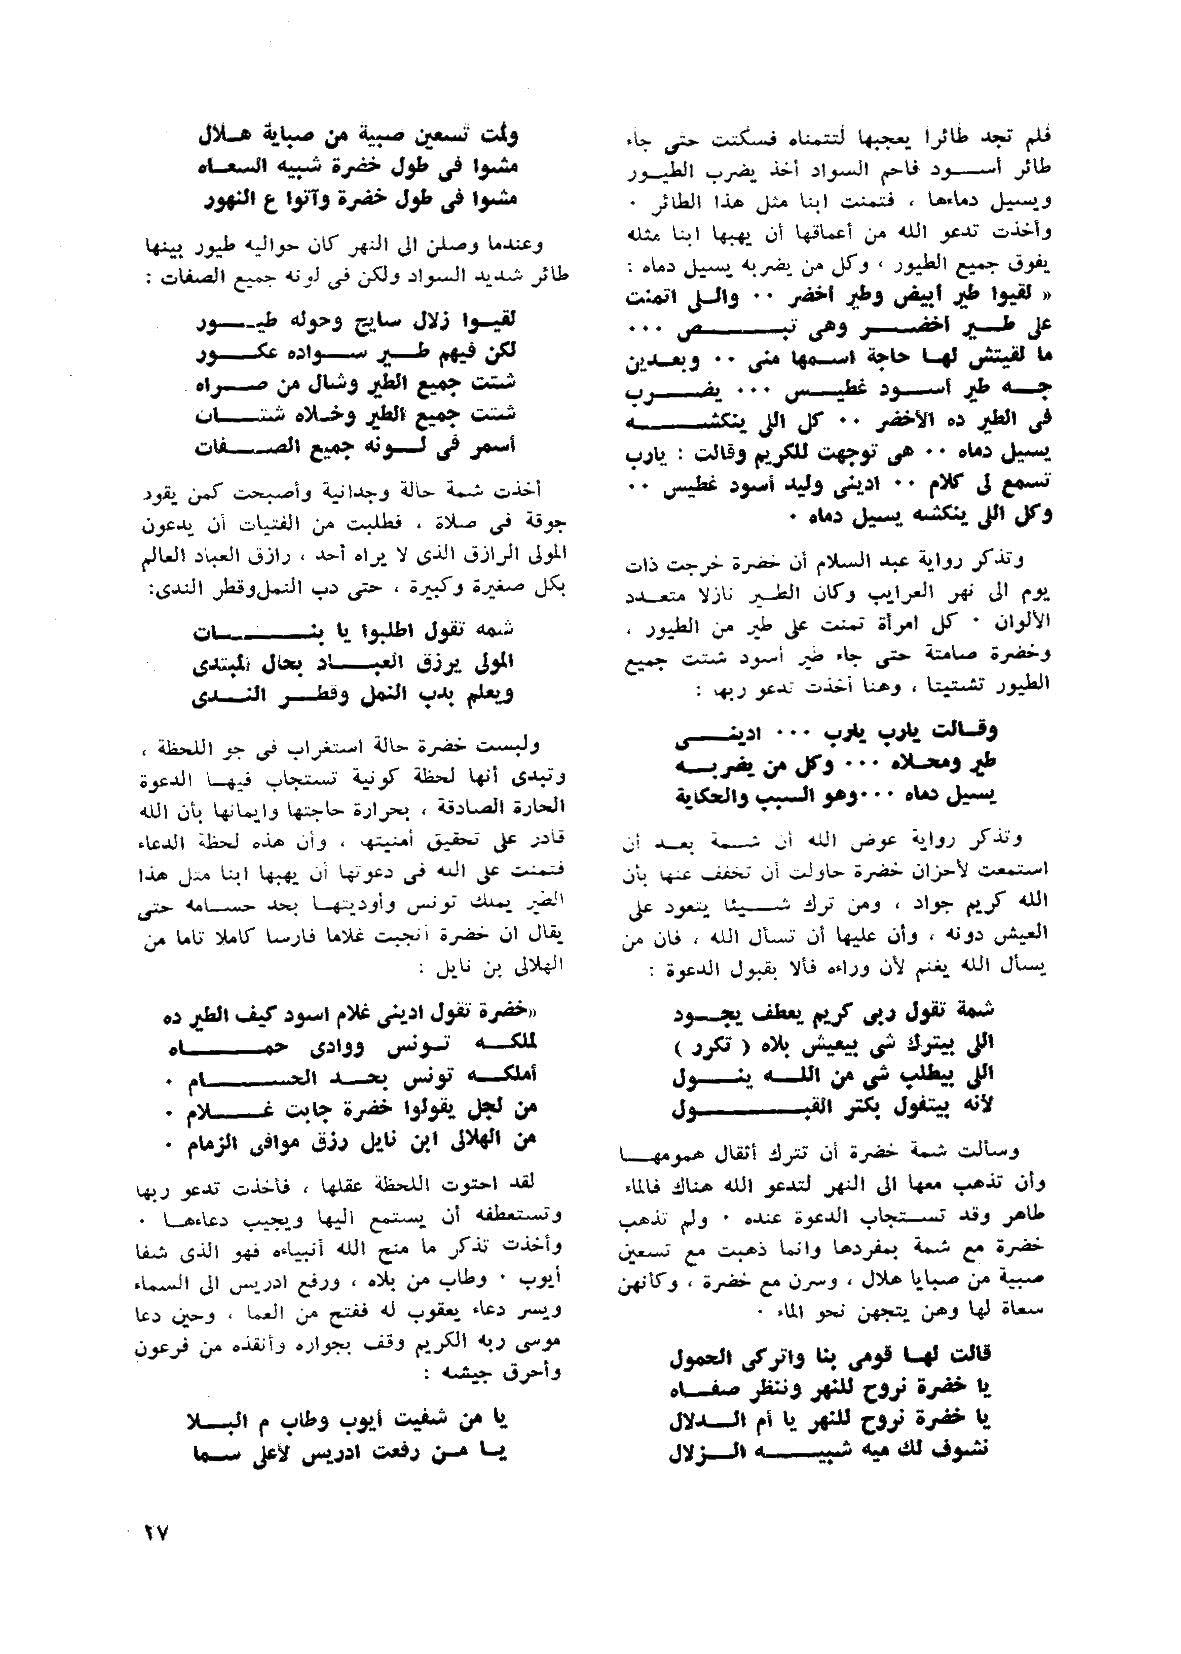 فلم تجد طائرا يعجبها لتتمناه فسكتت حتى جاء
طائر أسود فاحم السواد أخذ يضرب الطيور
ويسيل دماءها ، فتمنت ابنا مثل هذا الطائر ·
وأخذت تدعو الله من أعماقها أن يهبها ابنا مثله
يفوق جميع الطيور ، وكل من يضربه يسيل دماه :
« لقيوا طير أبيض وطير أخضر ·· واللى اتمنت
على طير أخضر وهى تبص ···
ما لقيتش لها حاجة اسمها منى ·· وبعدين
جه طير أسود غطيس ··· يضرب
فى الطير ده الأخضر ·· كل اللى ينكشه
يسيل دماه ·· هى توجهت للكريم وقالت : يارب
تسمع لى كلام ·· ادينى وليد أسود غطيس ··
وكل اللى ينكشه يسيل دماه ·
وتذكر رواية عبد السلام أن خضرة خرجت ذات
يوم الى نهر العرايب وكان الطير نازلا متعدد
الألوان · كل امرأة تمنت على طير من الطيور ،
وخضرة صامتة حتى جاء طير أسود شتت جميع
الطيور تشتيتا ، وهنا أخذت تدعو ربها :
وقالت يارب يارب ··· ادينى
طير ومحلاه ··· وكل من يضربه
يسيل دماه ···وهو السبب والحكاية
وتذكر رواية عوض الله أن شمة بعد أن
استمعت لأحزان خضرة حاولت أن تخفف عنها بأن
الله كريم جواد ، ومن ترك شيئا يتعود على
العيش دونه ، وأن عليها أن تسأل الله ، فان من
يسأل الله يغنم لأن وراءه فألا بقبول الدعوة :
شمة تقول ربى كريم يعطف يجود
اللى بيترك شى بيعيش بلاه ( تكرر )
اللى بيطلب شى من الله ينول
لأنه بيتفول بكتر القبول
وسألت شمة خضرة أن تترك أثقال همومها
وأن تذهب معها الى النهر لتدعو الله هناك فالماء
طاهر وقد تستجاب الدعوة عنده · ولم تذهب
خضرة مع شمة بمفردها وانما ذهبت مع تسعين
صبية من صبايا هلال ، وسرن مع خضرة ، وكانهن
سعاة لها وهن يتجهن نحو الماء ·
قالت لها قومى بنا واتركى الحمول
يا خضرة نروح للنهر وننظر صفاه
يا خضرة نروح للنهر يا أم الدلال
نشوف لك ميه شبيه الزلال
ولمت تسعين صبية من صباية هلال
مشوا فى طول خضرة شبيه السعاه
مشوا فى طول خضرة وآتوا ع النهور
وعندما وصلن الى النهر كان حواليه طيور بينها
طائر شديد السواد ولكن فى لونه جميع الصفات :
لقيوا زلال سايح وحوله طيور
لكن فيهم طير سواده عكور
شتت جميع الطير وشال من صراه
شتت جميع الطير وخلاه شتات
أسمر فى لونه جميع الصفات
أخذت شمة حالة وجدانية وأصبحت كمن يقود
جوقة فى صلاة ، فطلبت من الفتيات أن يدعون
المولى الرازق الذى لا يراه أحد ، رازق العباد العالم
بكل صغيرة وكبيرة ، حتى دب النمل وقطر الندى:
شمه تقول اطلبوا يا بنات
المولى يرزق العباد بحال المبتدى
ويعلم بدب النمل وقطر الندى
ولبست خضرة حالة استغراب فى جو اللحظة ،
وتبدى أنها لحظة كونية تستجاب فيها الدعوة
الحارة الصادقة ، بحرارة حاجتها وايمانها بأن الله
قادر على تحقيق أمنيتها ، وأن هذه لحظة الدعاء
فتمنت على الله فى دعوتها أن يهبها ابنا مثل هذا
الطير يملك تونس وأوديتها بحد حسامه حتى
يقال ان خضرة أنجبت غلاما فارسا كاملا تاما من
الهلالى بن نايل :
«خضرة تقول ادينى غلام اسود كيف الطير ده
لملكه تونس ووادى حماه
أملكه تونس بحد الحسام ·
من لجل يقولوا خضرة جابت غلام ·
من الهلالى ابن نايل رزق موافى الزمام ·
لقد احتوت اللحظة عقلها ، فأخذت تدعو ربها
وتستعطفه أن يستمع اليها ويجيب دعاءها ·
وأخذت تذكر ما منح الله أنبياءه فهو الذى شفا
أيوب · وطاب من بلاه ، ورفع ادريس الى السماء
ويسر دعاء يعقوب له ففتح من العما ، وحين دعا
موسى ربه الكريم وقف بجواره وأنقذه من فرعون
وأحرق جيشه :
يا من شفيت أيوب وطاب م البلا
يا من رفعت ادريس لأعلى سما
٢٧